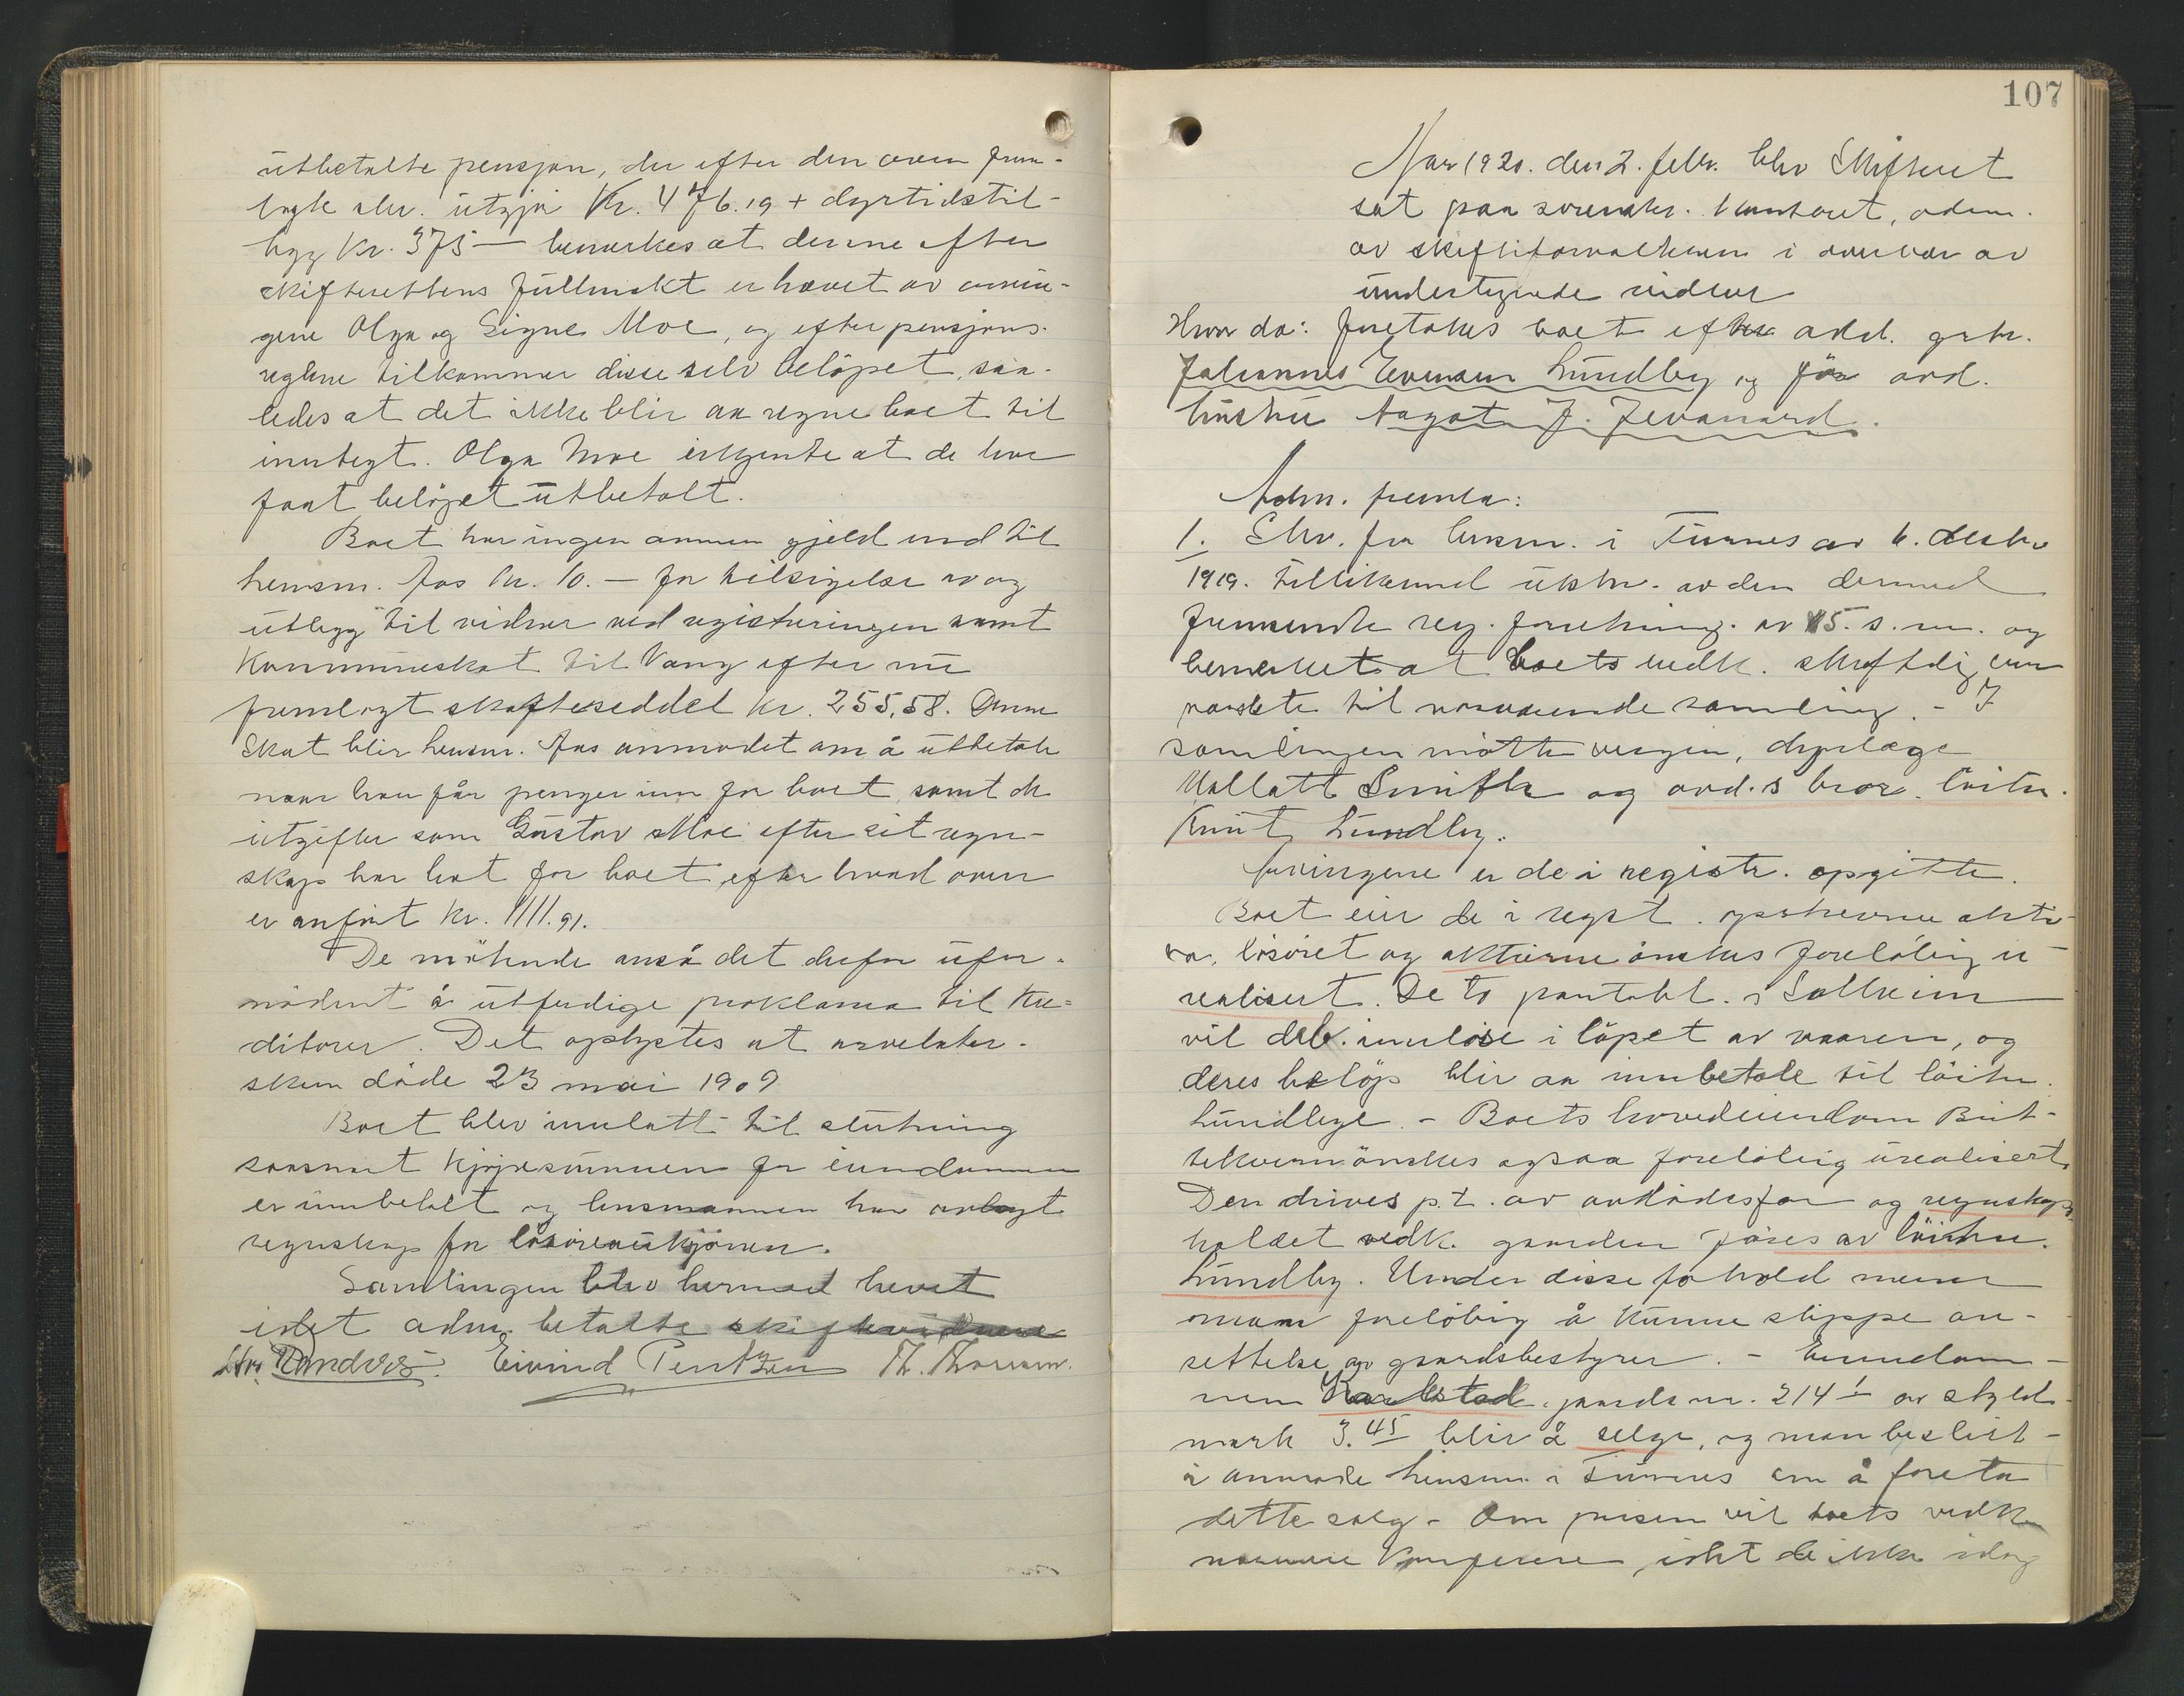 utbetalte pensjon, der efter den oven frem-
lagte skr. utgjør Kr. 476.19 + dyrtidstil-
legg Kr. 375 – bemerkes at denne efter
skifterettens fullmakt er hævet av arvin-
gene Olga og Signe Moe, og efter pensjons-
reglene tilkommer disse selv beløpet, saa-
ledes at det ikke blir aa regne boet til
inntegt. Olga Moe erkjente at de har
faat beløpet utbetalt.
Boet har ingen annen gjeld end til
lensm. Aas kr. 10. – for tilsigelse av og
utlegg til vidner ved registreringen samt
Kommuneskat til Vang efter nu
fremlagt skatteseddel kr. 255,58. Denne
skat blir lensm. Aas anmodet om å utbetale
naar han får penger inn for boet, samt de
utgifter som Gustav Moe efter sit regn-
skap har hat for boet, efter hvad oven
er anført kr. 1111.91.
De møtende anså det derfor ufor-
nødent å utferdige proklama til kre-
ditorer. Det oplystes at arvelater-
sken døde 23 mai 1909
Boet blev innlatt til slutning
saasnart kjøpesummen for eiendommen
er innbetalt og lensmannen har avlagt
regnskap for løsøreauksjonen.
Samlingen blev hermed hevet
idet adm. betalte skiftevidnene
Eivind Pentzen Th.
107
Aar 1920. den 2. febr. blev Skifteret
sat paa sorenskr. kontoret, adm.
av skifteforvalteren i overvær av
undertegnede vidner
Hvor da: foretokes boet efter avd. grbr.
Johannes Evensen Lundby og før avd.
hustru Aagot J. Jevanord.
Adm. fremla:
1. Skr. fra lensm. i Furnes av 6. desbr
1919. tillikemed utskr. av den dermed
fremsendte reg. forretning. av 15. s. m. og
bemerket at boets vedk. skriftlig var
varslet til nærværende samling. – I
samlingen møtte vergen, dyrlæge
Hallatt Smith og avd.s bror løitn.
Knut Lundby.
Arvingene er de i registr. opgitte.
Boet eier de i regist. opskrevne akti-
va, løsøret og aktierne ønskes foreløbig u-
realisert. De to pantobl. i Solheim
vil deb. innløse i løpet av vaaren, og
deres beløp blir aa innbetale til løitn.
Lundbye. – Boets hovedeiendom Brit-
tekvern ønskes ogsaa foreløbig urealisert.
Den drives p.t. av avdødes far og regnskaps
holdet vedk. gaarden føres av løitn.
Lundby. Under disse forhold mener
man foreløbig å kunne slippe an-
settelse av gaardsbestyrer. – Eiendom-
men Karlstad, gaards nr. 214 1 av skyld-
mark 3.45 blir å selge, og man beslut-
å anmode lensm. i Furnes om å foreta
dette salg. – Om prisen vil boets vedk
nærmere konferere, idet de ikke idag